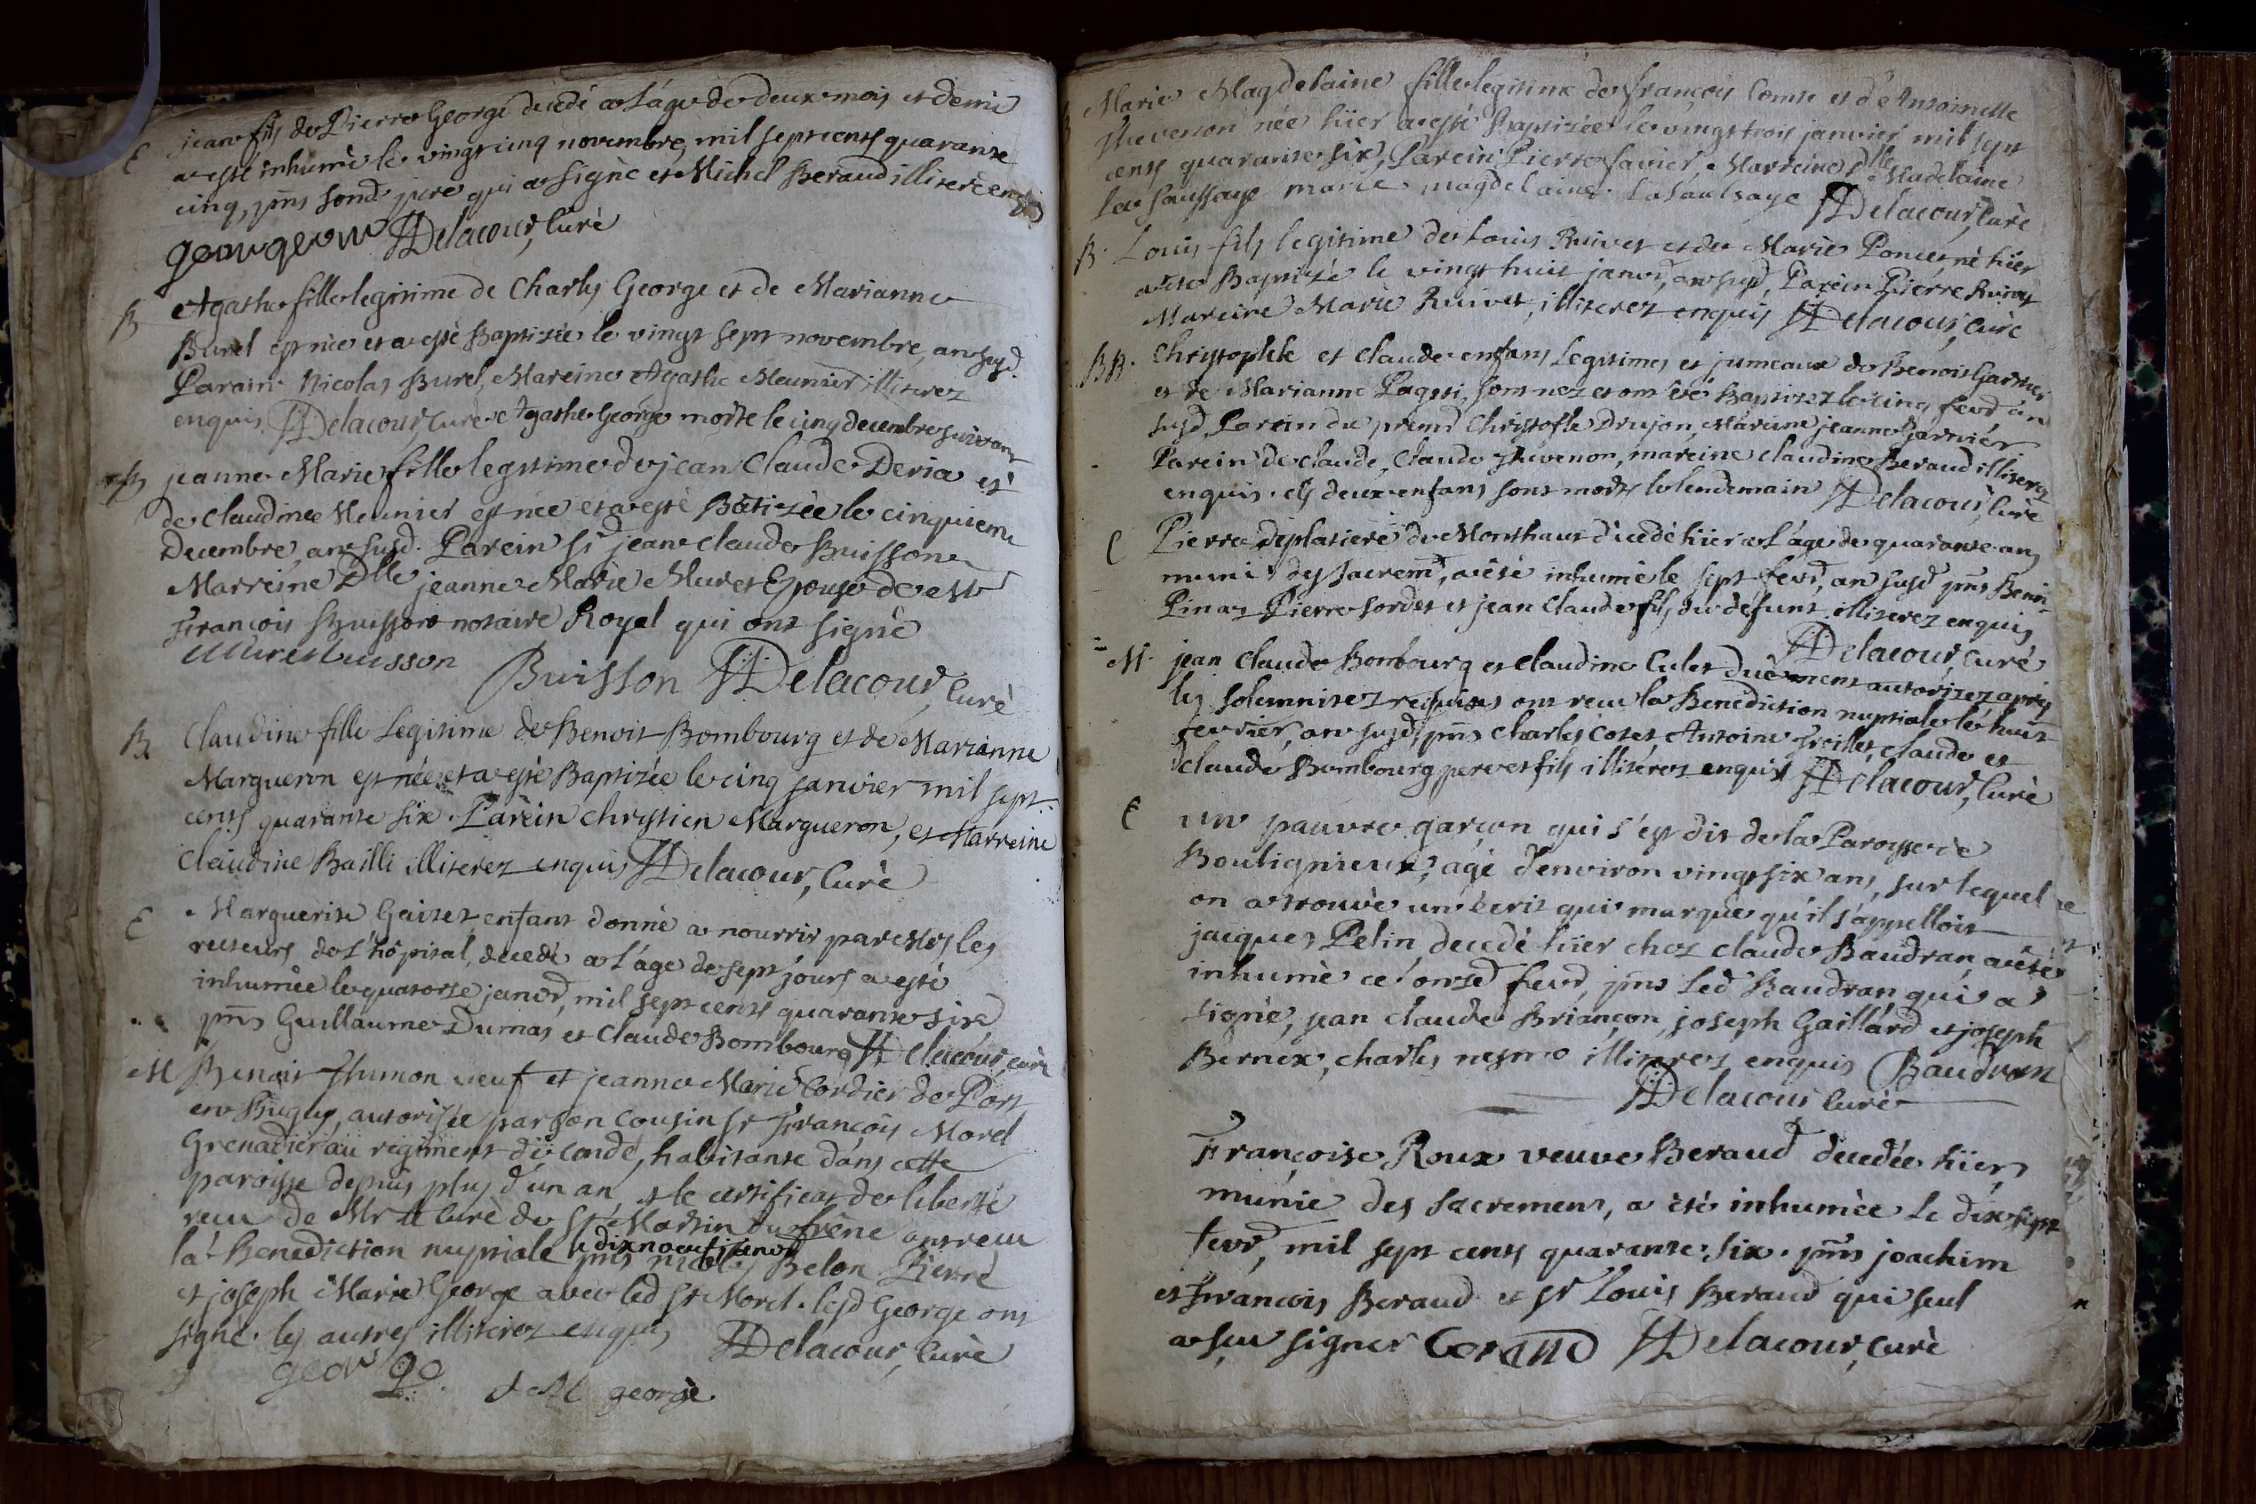 E jean fils de Pierre George décédé a l'age de deux mois et demi
a esté inhumé le vingt cinq novembre, mil sept cents quarante
cinq, pnts sond. pere qui a signé et Michel Beraud illiteré enq.
george Delacour, Curé
B Agathe fille legitime de Charles George et de Marianne
Burel est née et a esté Baptisée le vingt sept novembre, an susd.
Parain Nicolas Burel, Mareine Agathe Meunier illiterez
enquis, Delacour, Curé. Agathe George morte le cinq decembre suivant
B jeanne Marie fille legitime de jean Claude Deria et
de Claudine Meunier est née et a esté Batisée le cinquieme
Decembre, an susd. Parein sr jean Claude Buisson
Marreine Dlle jeanne Marie Muret Epouse de Mr
François Buisson notaire Royal qui ont signé
Muret buisson Buisson Delacour, Curé
B Claudine fille Legitime de Benoit Bombourg et de Marianne
Margueron est née et a esté Baptizée le cinq janvier mil sept
cents quarante six. Parein Christien Margueron, et Marreine
Claudine Bailli illiterez enquis Delacour, Curé
E Marguerite Gaitet, enfant donné a nourrir par Mrs les
recteurs de l'hôpital, decedé a l'age de sept jours a esté
inhumée le quatorse janvr, mil sept cents quarante six
pnts Guillaume Dumas et Claude Bombourg Delacour, Curé
M Benoit Thimon veuf et jeanne Marie Cordier de Port
en Bugey, autorisée par son Cousin sr François Morel
Grenadier au regiment de Condé, habitante dans cette
paroisse depuis plus d'un an, et le certificat de liberté
recu de Mr le Curé de St Martin du frêne ont recu
la Benediction nuptiale le dixneuf janvr pnts Belon Pierre
et joseph Marie George avec led sr Morel. lesd George ont
signé. les autres illiterez enquis Delacour, Curé
george J M george
Marie Magdelaine fille legitime de françois Comte et d'Antoinette
Thevenon née hier a esté Baptisée le vingt trois janvier mil sept
cents quarante six, Parein Pierre favier, Marreine Dlle Madelaine
La Saussaye marie magdelaine Lasaulsaye Delacour, Curé
B. Louis fils legitime de Louis Ruivet et de Marie Poncet né hier
a été Baptizé le vingt huit janvr, an susd, Parein Pierre Ruivet
Mareine Marie Ruivet, illiterez enquis Delacour, Curé
BB. Christophle et Claude enfans Legitimes et jumeaux de Benoit Garnier
et de Marianne Pageti, sont nez et ont été Baptisez le cinq fevr an
susd, Parein du premr Christofle Drujon, Mareine jeanne Garnier
Parein de Claude, Claude Thevenon, mareine Claudine Beraud illiterez
enquis. les deux enfans sont morts le lendemain Delacour, Curé
E Pierre Deplatiere de Monthaut décédé hier a l'age de quarante ans
muni des Sacremts, a été inhumé le sept fevr, an susd pnts Benoi
Pinaz Pierre Sordet et jean Claude fils du défunt illiterez enquis
Delacour, Curé
M. jean Claude Bombourg et Claudine Culet duëment autorisez aprés
les solemnitez requises ont recu la Benediction nuptiale le huit
fevrier, an susd, pnts Charles Cotet, Antoine Troillet, Claude et
Claude Bombourg pere et fils illiterez enquis Delacour, Curé
E un pauvre garçon qui s'est dit de la Paroisse de
Bouligneux, agé d'environ vingt six ans, sur lequel
on a trouvé un écrit qui marque qu'il s'appelloit
jacques Pelin, decedé hier chez Claude Baudran a été
inhumé ce onze fevr, pnts led Baudran qui a
signé, jean Claude Briançon, joseph Gaillard et joseph
Bernex, Charles nesmo illiterez enquis Baudran
Delacour Curé
Françoise Roux veuve Beraud decedée hier,
munie des sacremens, a été inhumée le dix sept
fevr, mil sept cents quarante six. pnts joachim
et François Beraud et sr Louis Beraud qui seul
a sçu signer Beraud Delacour, Curé